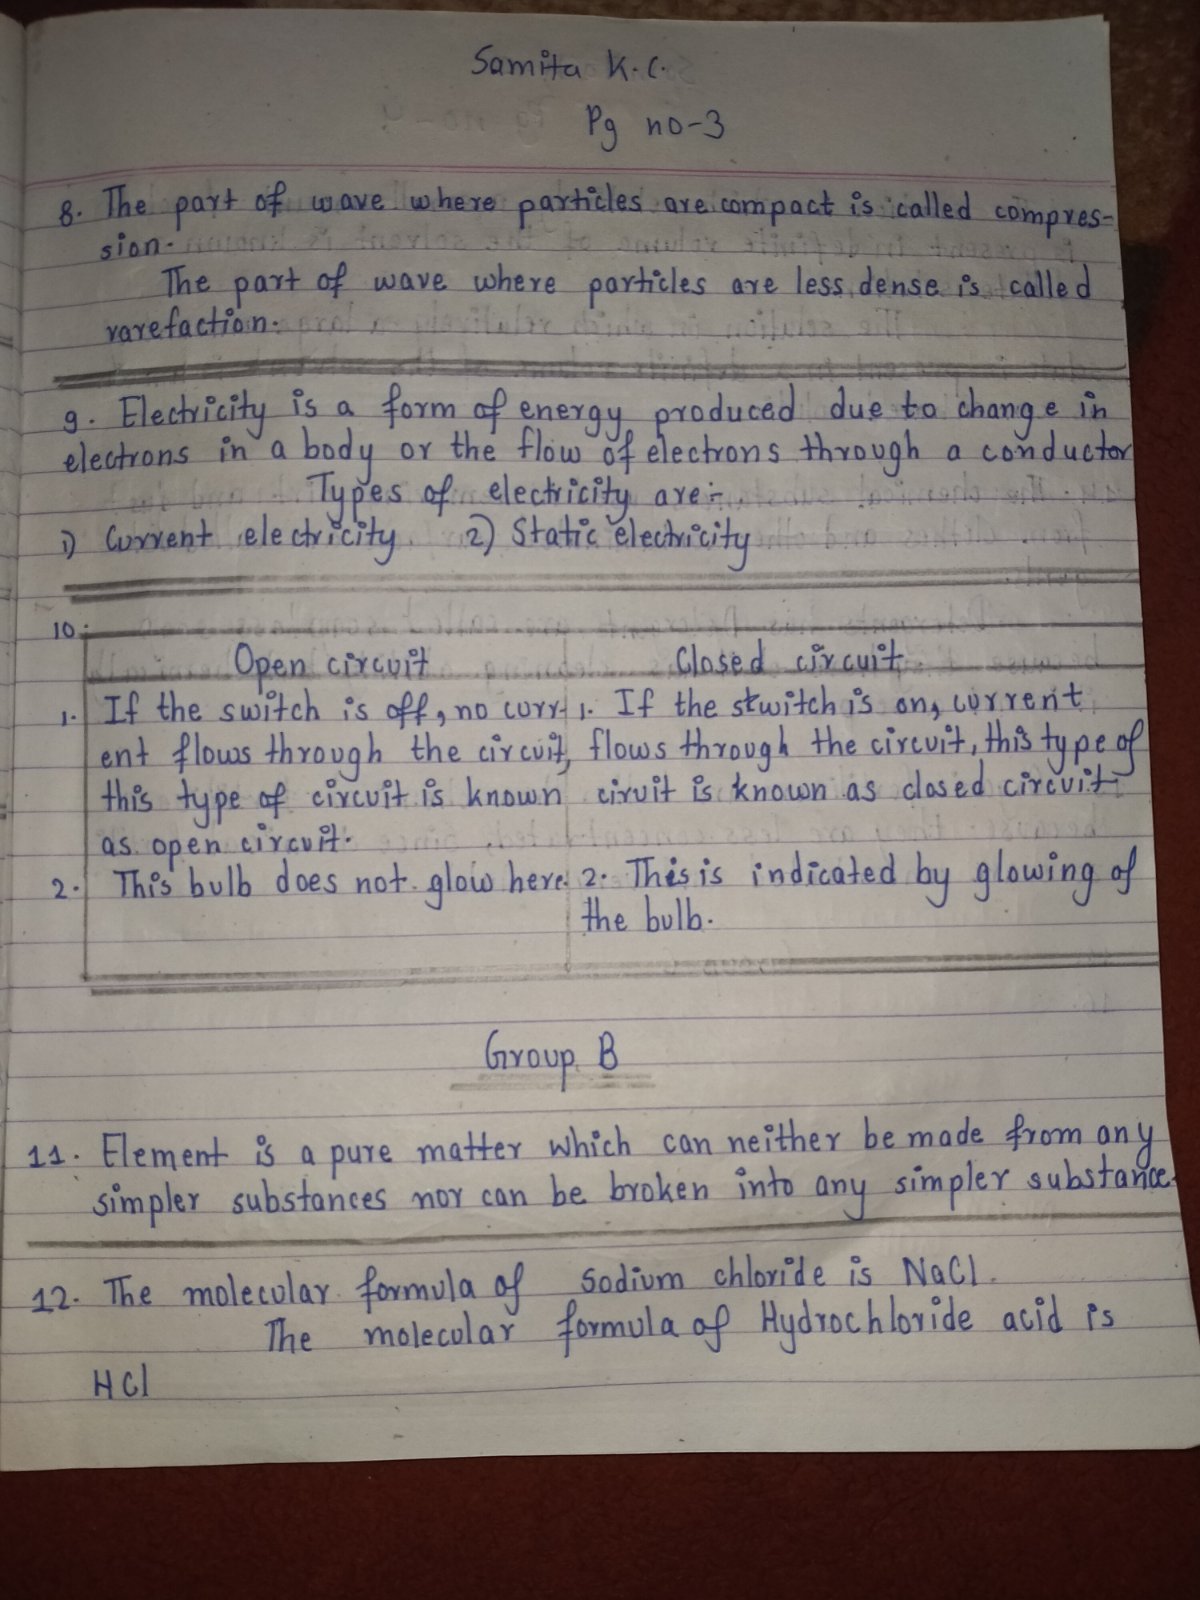 Samita K.C.
Pg no-3
8. The part of wave where particles are compact is called compres-
sion.
The part of wave where particles are less dense is called
rarefaction.
9. Electricity is a form of energy produced due to change in
electrons in a body or the flow of electrons through a conductor
Types of electricity are:-
1) Current electricity 2) Static electricity
10.
Open circuit Closed circuit
1. If the switch is off, no curr- 1. If the stwitch is on, current
ent flows through the circuit, flows through the circuit, this type of
this type of circuit is known ciruit is known as closed circuit
as open circuit.
2. This bulb does not glow here. 2. This is indicated by glowing of
the bulb.
Group B
11. Element is a pure matter which can neither be made from any
simpler substances nor can be broken into any simpler substance.
12. The molecular formula of Sodium chloride is NaCl.
The molecular formula of Hydrochloride acid is
HCl